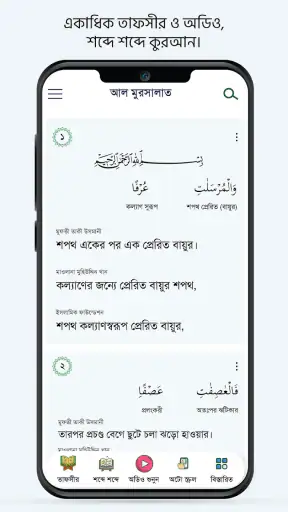 একাধিক তাফসীর ও অডিও,
শব্দে শব্দে কুরআন।
আল মুরসালাত
১
بِسْمِ اللَّهِ الرَّحْمَٰنِ الرَّحِيمِ
وَالْمُرْسَلٰتِ عُرْفًا
শপথ প্রেরিত (বায়ুর) কল্যাণ স্বরূপ
মুফতী তাকী উসমানী
শপথ একের পর এক প্রেরিত বায়ুর।
মাওলানা মুহিউদ্দিন খান
কল্যাণের জন্যে প্রেরিত বায়ুর শপথ,
ইসলামিক ফাউন্ডেশন
শপথ কল্যাণস্বরূপ প্রেরিত বায়ুর,
২
فَالْعٰصِفٰتِ عَصْفًا
অতঃপর ঝটিকার প্রলংকরী
মুফতী তাকী উসমানী
তারপর প্রচণ্ড বেগে ছুটে চলা ঝড়ো হাওয়ার।
মাওলানা মুহিউদ্দিন খান
তাফসীর শব্দে শব্দে অডিও শুনুন অটো স্ক্রল বিস্তারিত